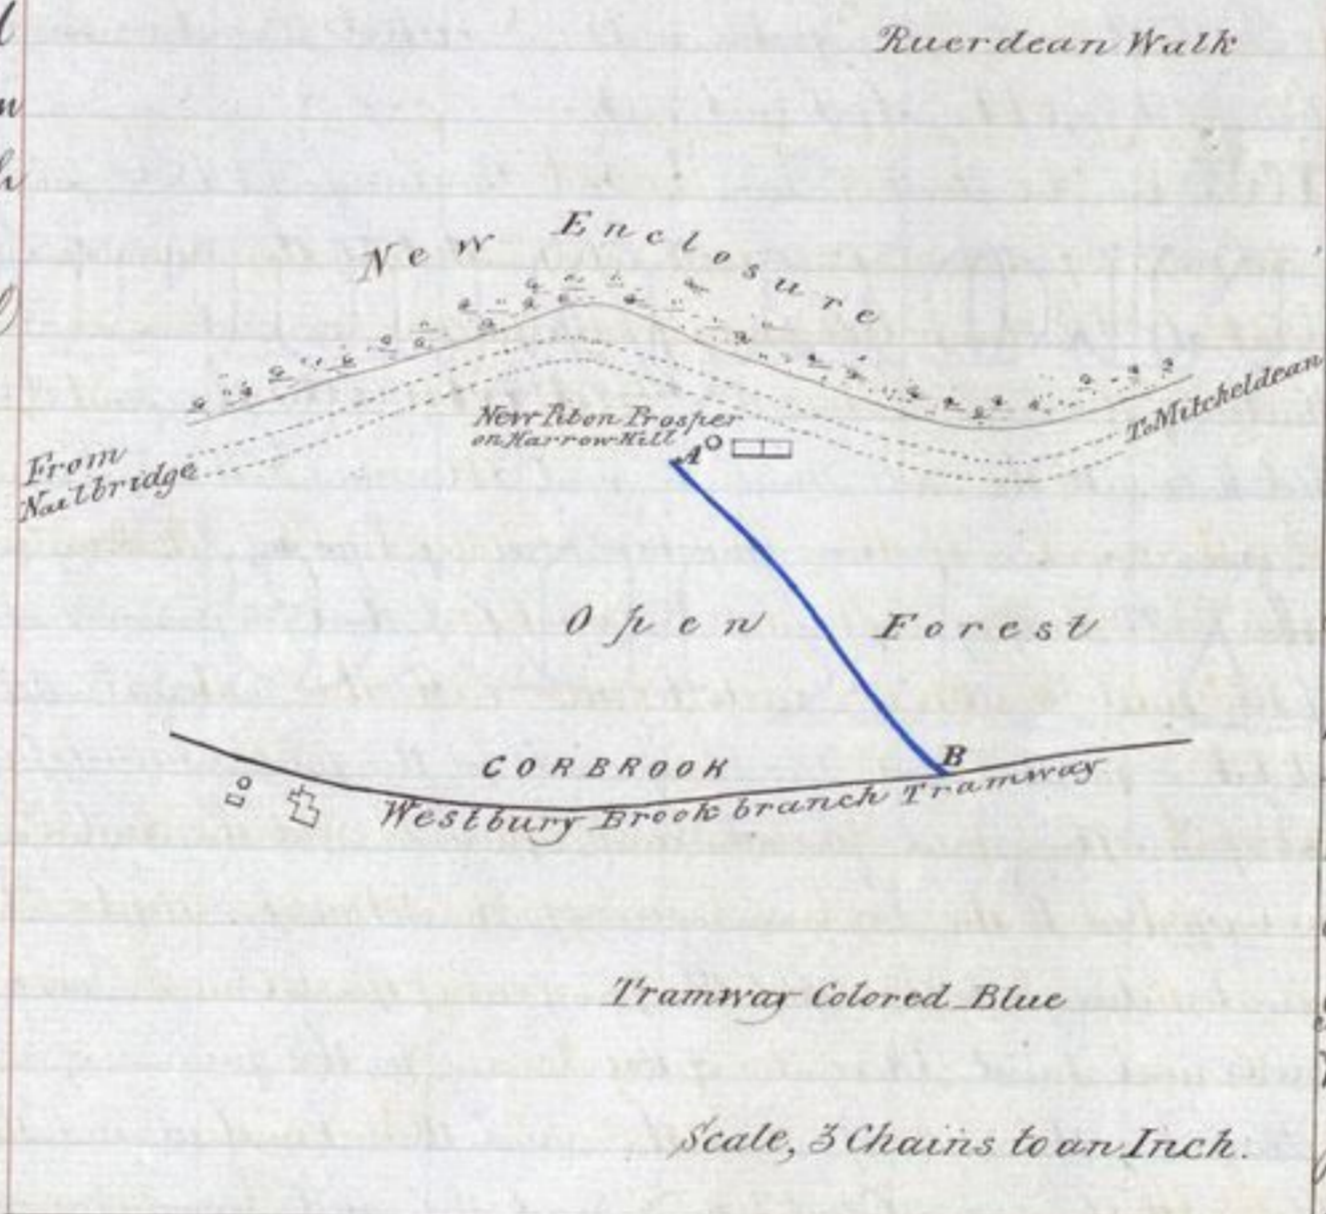 Ruerdean Walk
New Enclosure
To Mitcheldean
New Pit on Prosper
on Harrow Hill
A
From
Nailbridge
Open Forest
B
CORBROOK
Westbury Brook branch Tramway
Tramway Colored Blue
Scale, 3 Chains to an Inch.